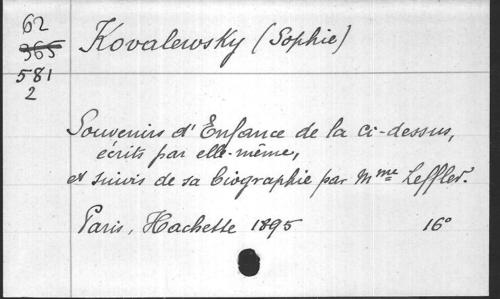 62
365
581
2
Kovalewsky (Sophie)
Souvenirs d'Enfance de la ci-dessus,
écrits par elle-même,
et suivis de sa biographie par Mme Leffler.
Paris, Hachette 1895 16°